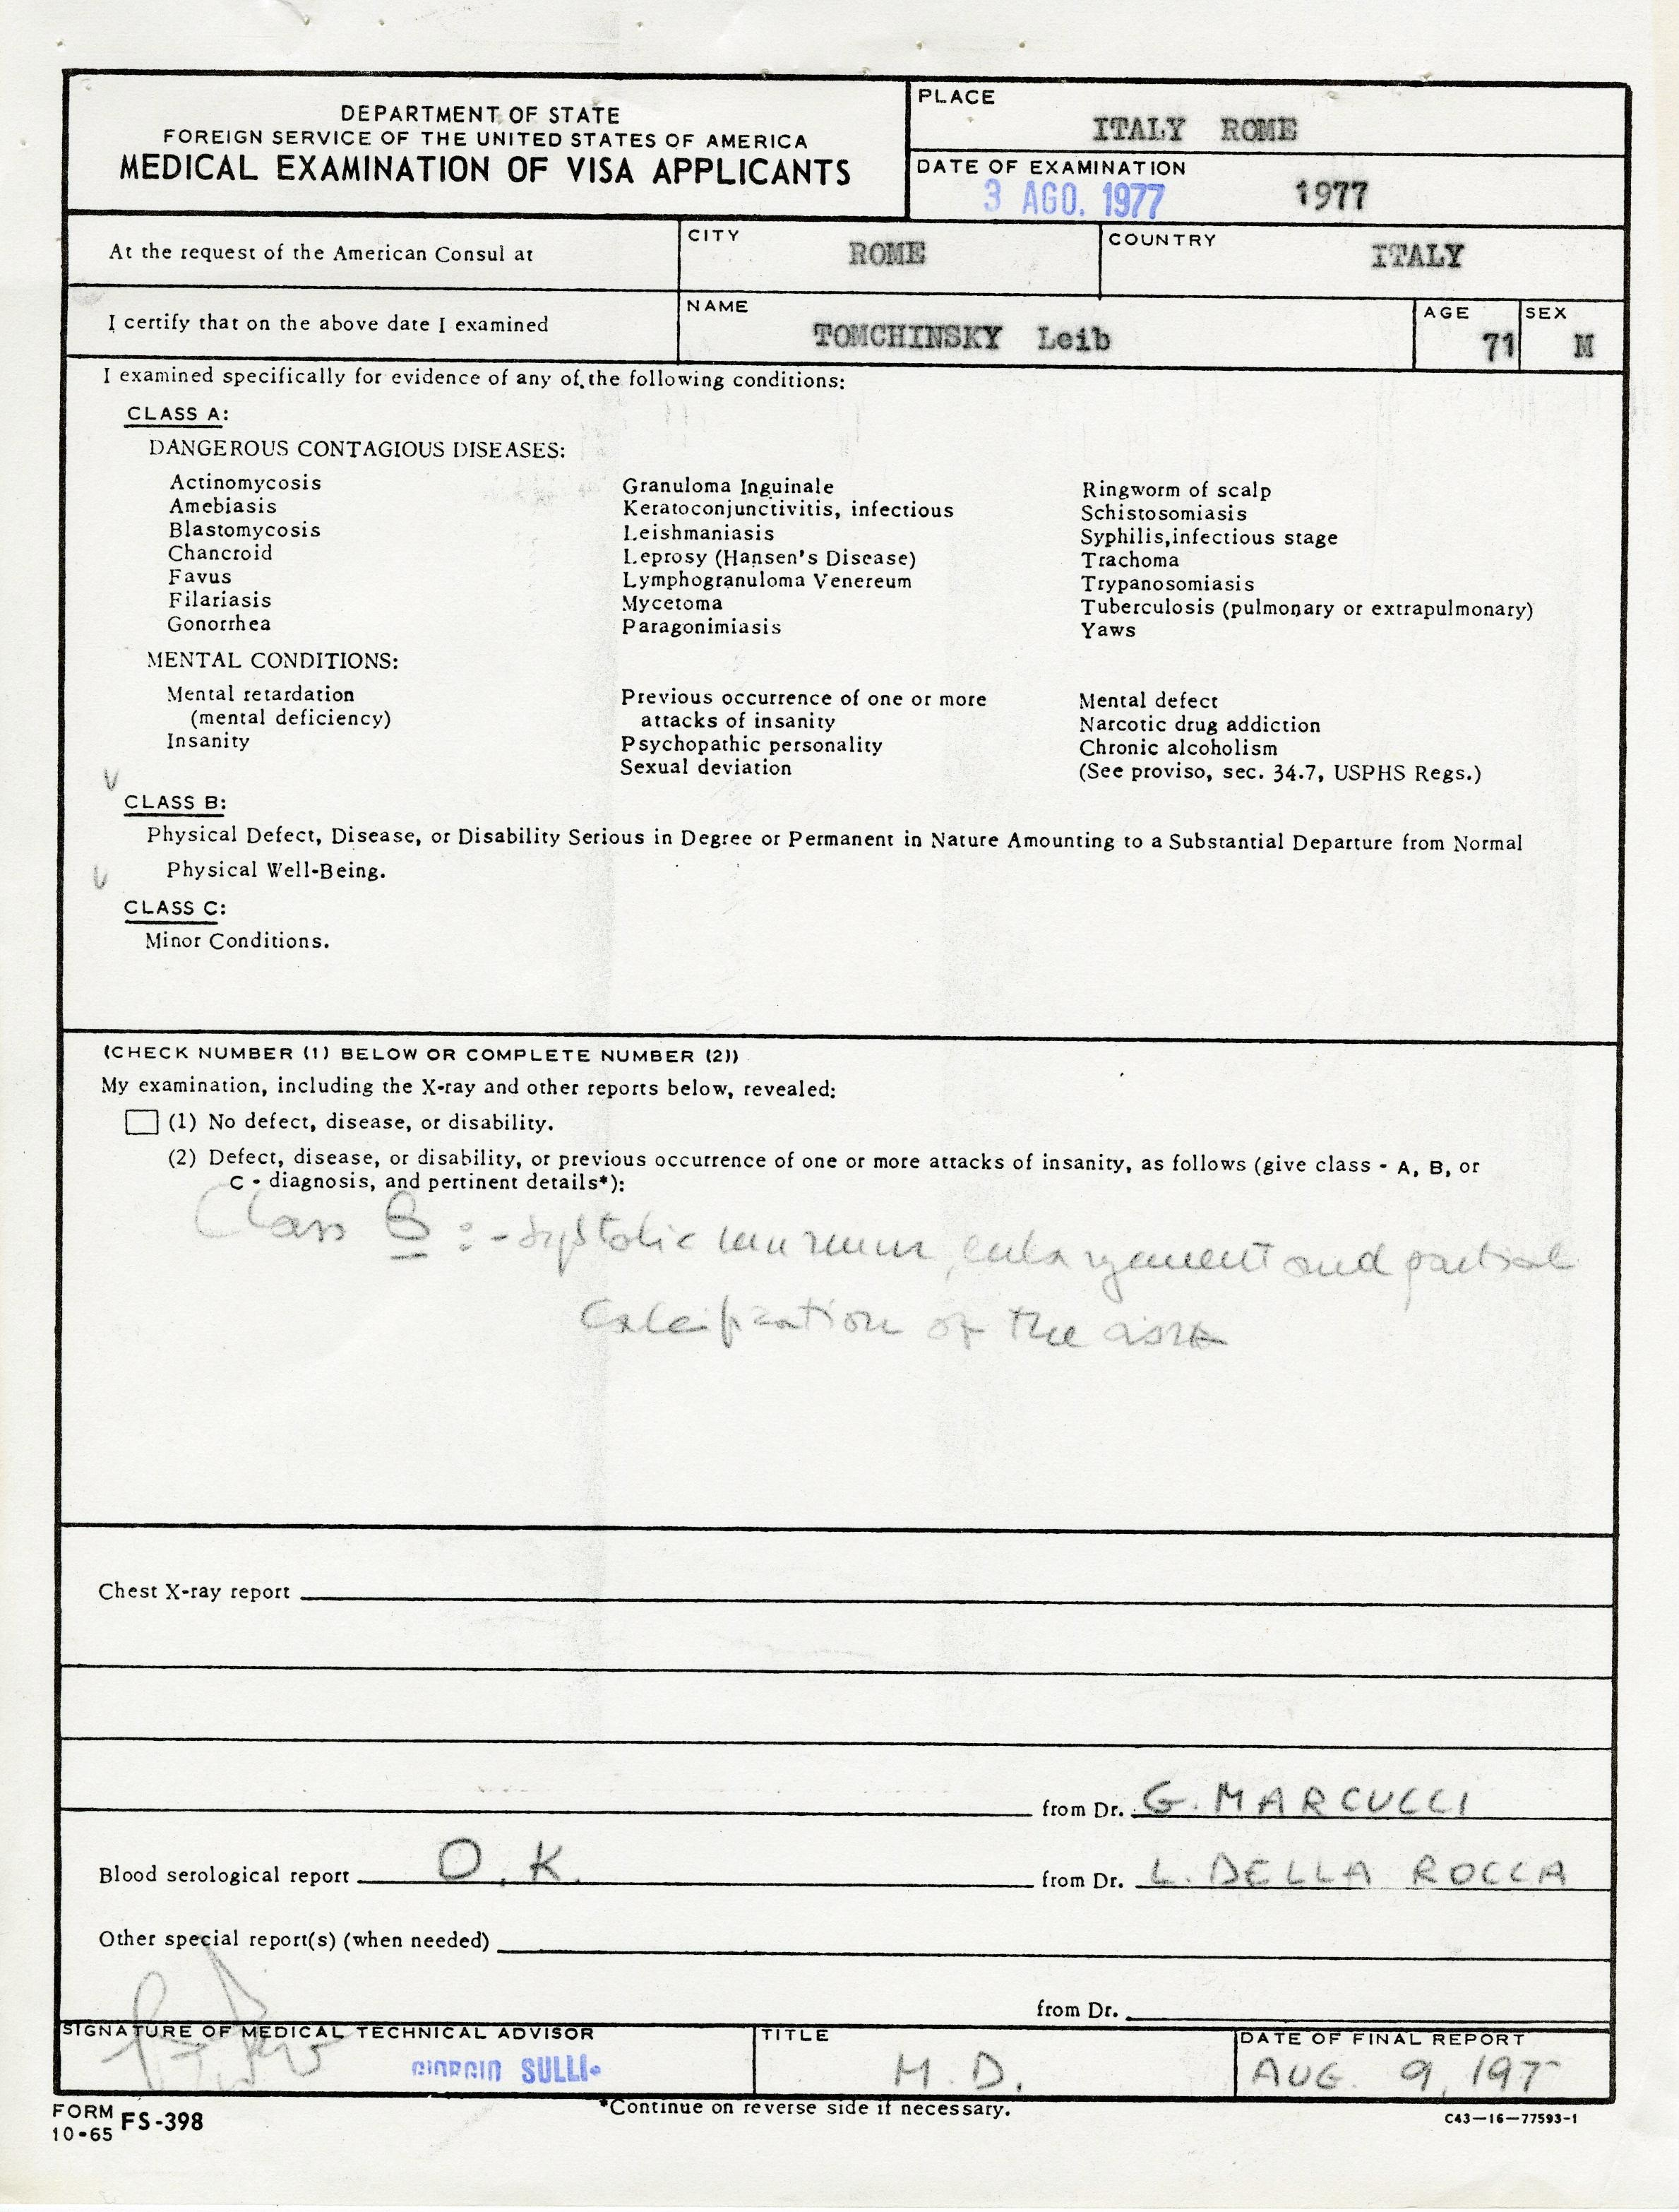 DEPARTMENT OF STATE
FOREIGN SERVICE OF THE UNITED STATES OF AMERICA
MEDICAL EXAMINATION OF VISA APPLICANTS
PLACE
ITALY ROME
DATE OF EXAMINATION
3 AGO. 1977 1977
At the request of the American Consul at
CITY
ROME
COUNTRY
ITALY
I certify that on the above date I examined
NAME
TOMCHINSKY Leib
AGE
71
SEX
M
I examined specifically for evidence of any of the following conditions:
CLASS A:
DANGEROUS CONTAGIOUS DISEASES:
Actinomycosis
Amebiasis
Blastomycosis
Chancroid
Favus
Filariasis
Gonorrhea
Granuloma Inguinale
Keratoconjunctivitis, infectious
Leishmaniasis
Leprosy (Hansen's Disease)
Lymphogranuloma Venereum
Mycetoma
Paragonimiasis
Ringworm of scalp
Schistosomiasis
Syphilis,infectious stage
Trachoma
Trypanosomiasis
Tuberculosis (pulmonary or extrapulmonary)
Yaws
MENTAL CONDITIONS:
Mental retardation
(mental deficiency)
Insanity
Previous occurrence of one or more
attacks of insanity
Psychopathic personality
Sexual deviation
Mental defect
Narcotic drug addiction
Chronic alcoholism
(See proviso, sec. 34.7, USPHS Regs.)
CLASS B:
Physical Defect, Disease, or Disability Serious in Degree or Permanent in Nature Amounting to a Substantial Departure from Normal
Physical Well-Being.
CLASS C:
Minor Conditions.
(CHECK NUMBER (1) BELOW OR COMPLETE NUMBER (2))
My examination, including the X-ray and other reports below, revealed:
(1) No defect, disease, or disability.
(2) Defect, disease, or disability, or previous occurrence of one or more attacks of insanity, as follows (give class - A, B, or
C - diagnosis, and pertinent details*):
Class B : - Systolic murmur, enlargement and partial
calcification of the aorta
Chest X-ray report
from Dr. G. MARCUCCI
Blood serological report O.K. from Dr. L. DELLA ROCCA
Other special report(s) (when needed)
from Dr.
SIGNATURE OF MEDICAL TECHNICAL ADVISOR
GIORGIO SULLI
TITLE
M.D.
DATE OF FINAL REPORT
AUG. 9, 197
*Continue on reverse side if necessary.
FORM
10-65 FS-398
C43-16-77593-1